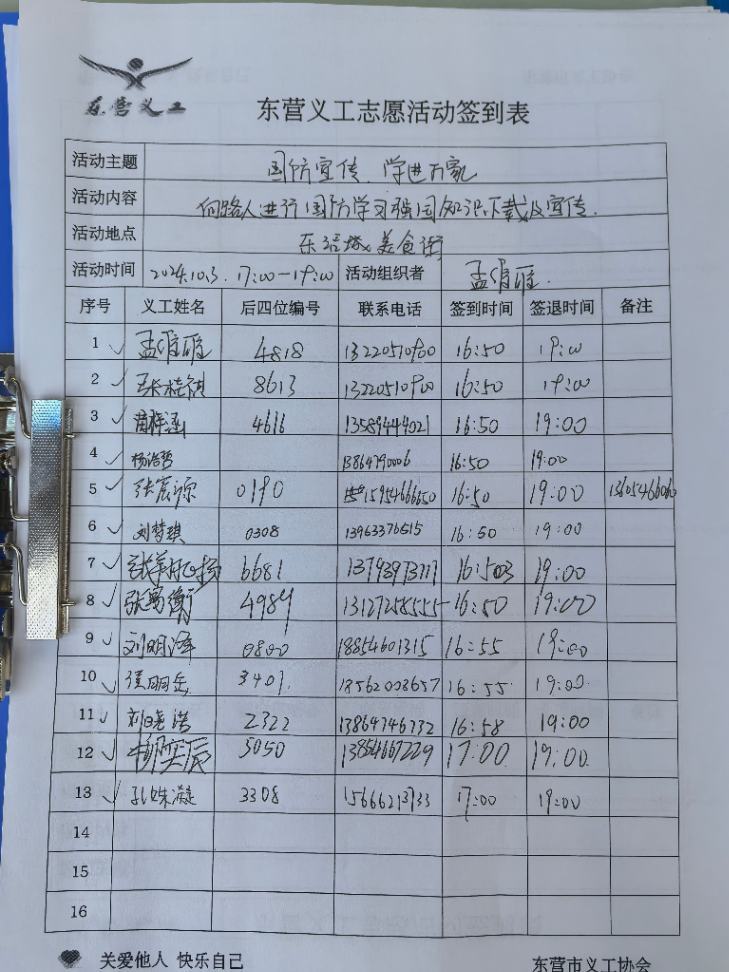 东营义工
东营义工志愿活动签到表
活动主题 国防宣传、学进万家
活动内容 向路人进行国防学习强国知识下载及宣传.
活动地点 美食街
活动时间 2024.10.3. 17:00—19:00 活动组织者 孟
序号 义工姓名 后四位编号 联系电话 签到时间 签退时间 备注
1 孟 4818 13220510900 16:50 19:00
2 8613 13220510900 16:50 19:00
3 4616 13589444021 16:50 19:00
4 杨 13864790006 16:50 19:00
5 张 0190 15954666650 16:50 19:00
6 刘梦琪 0308 13963376515 16:50 19:00
7 6681 16:50 19:00
8 张 4984 13127258555 16:50 19:00
9 刘明泽 0800 18854601315 16:55 19:00
10 3401. 18562003657 16:55 19:00
11 刘晓浩 2322 13864746732 16:58 19:00
12 奕辰 5050 13854667229 17:00 19:00
13 孔姝凝 3308 15666213733 17:00 19:00
14
15
16
关爱他人 快乐自己 东营市义工协会